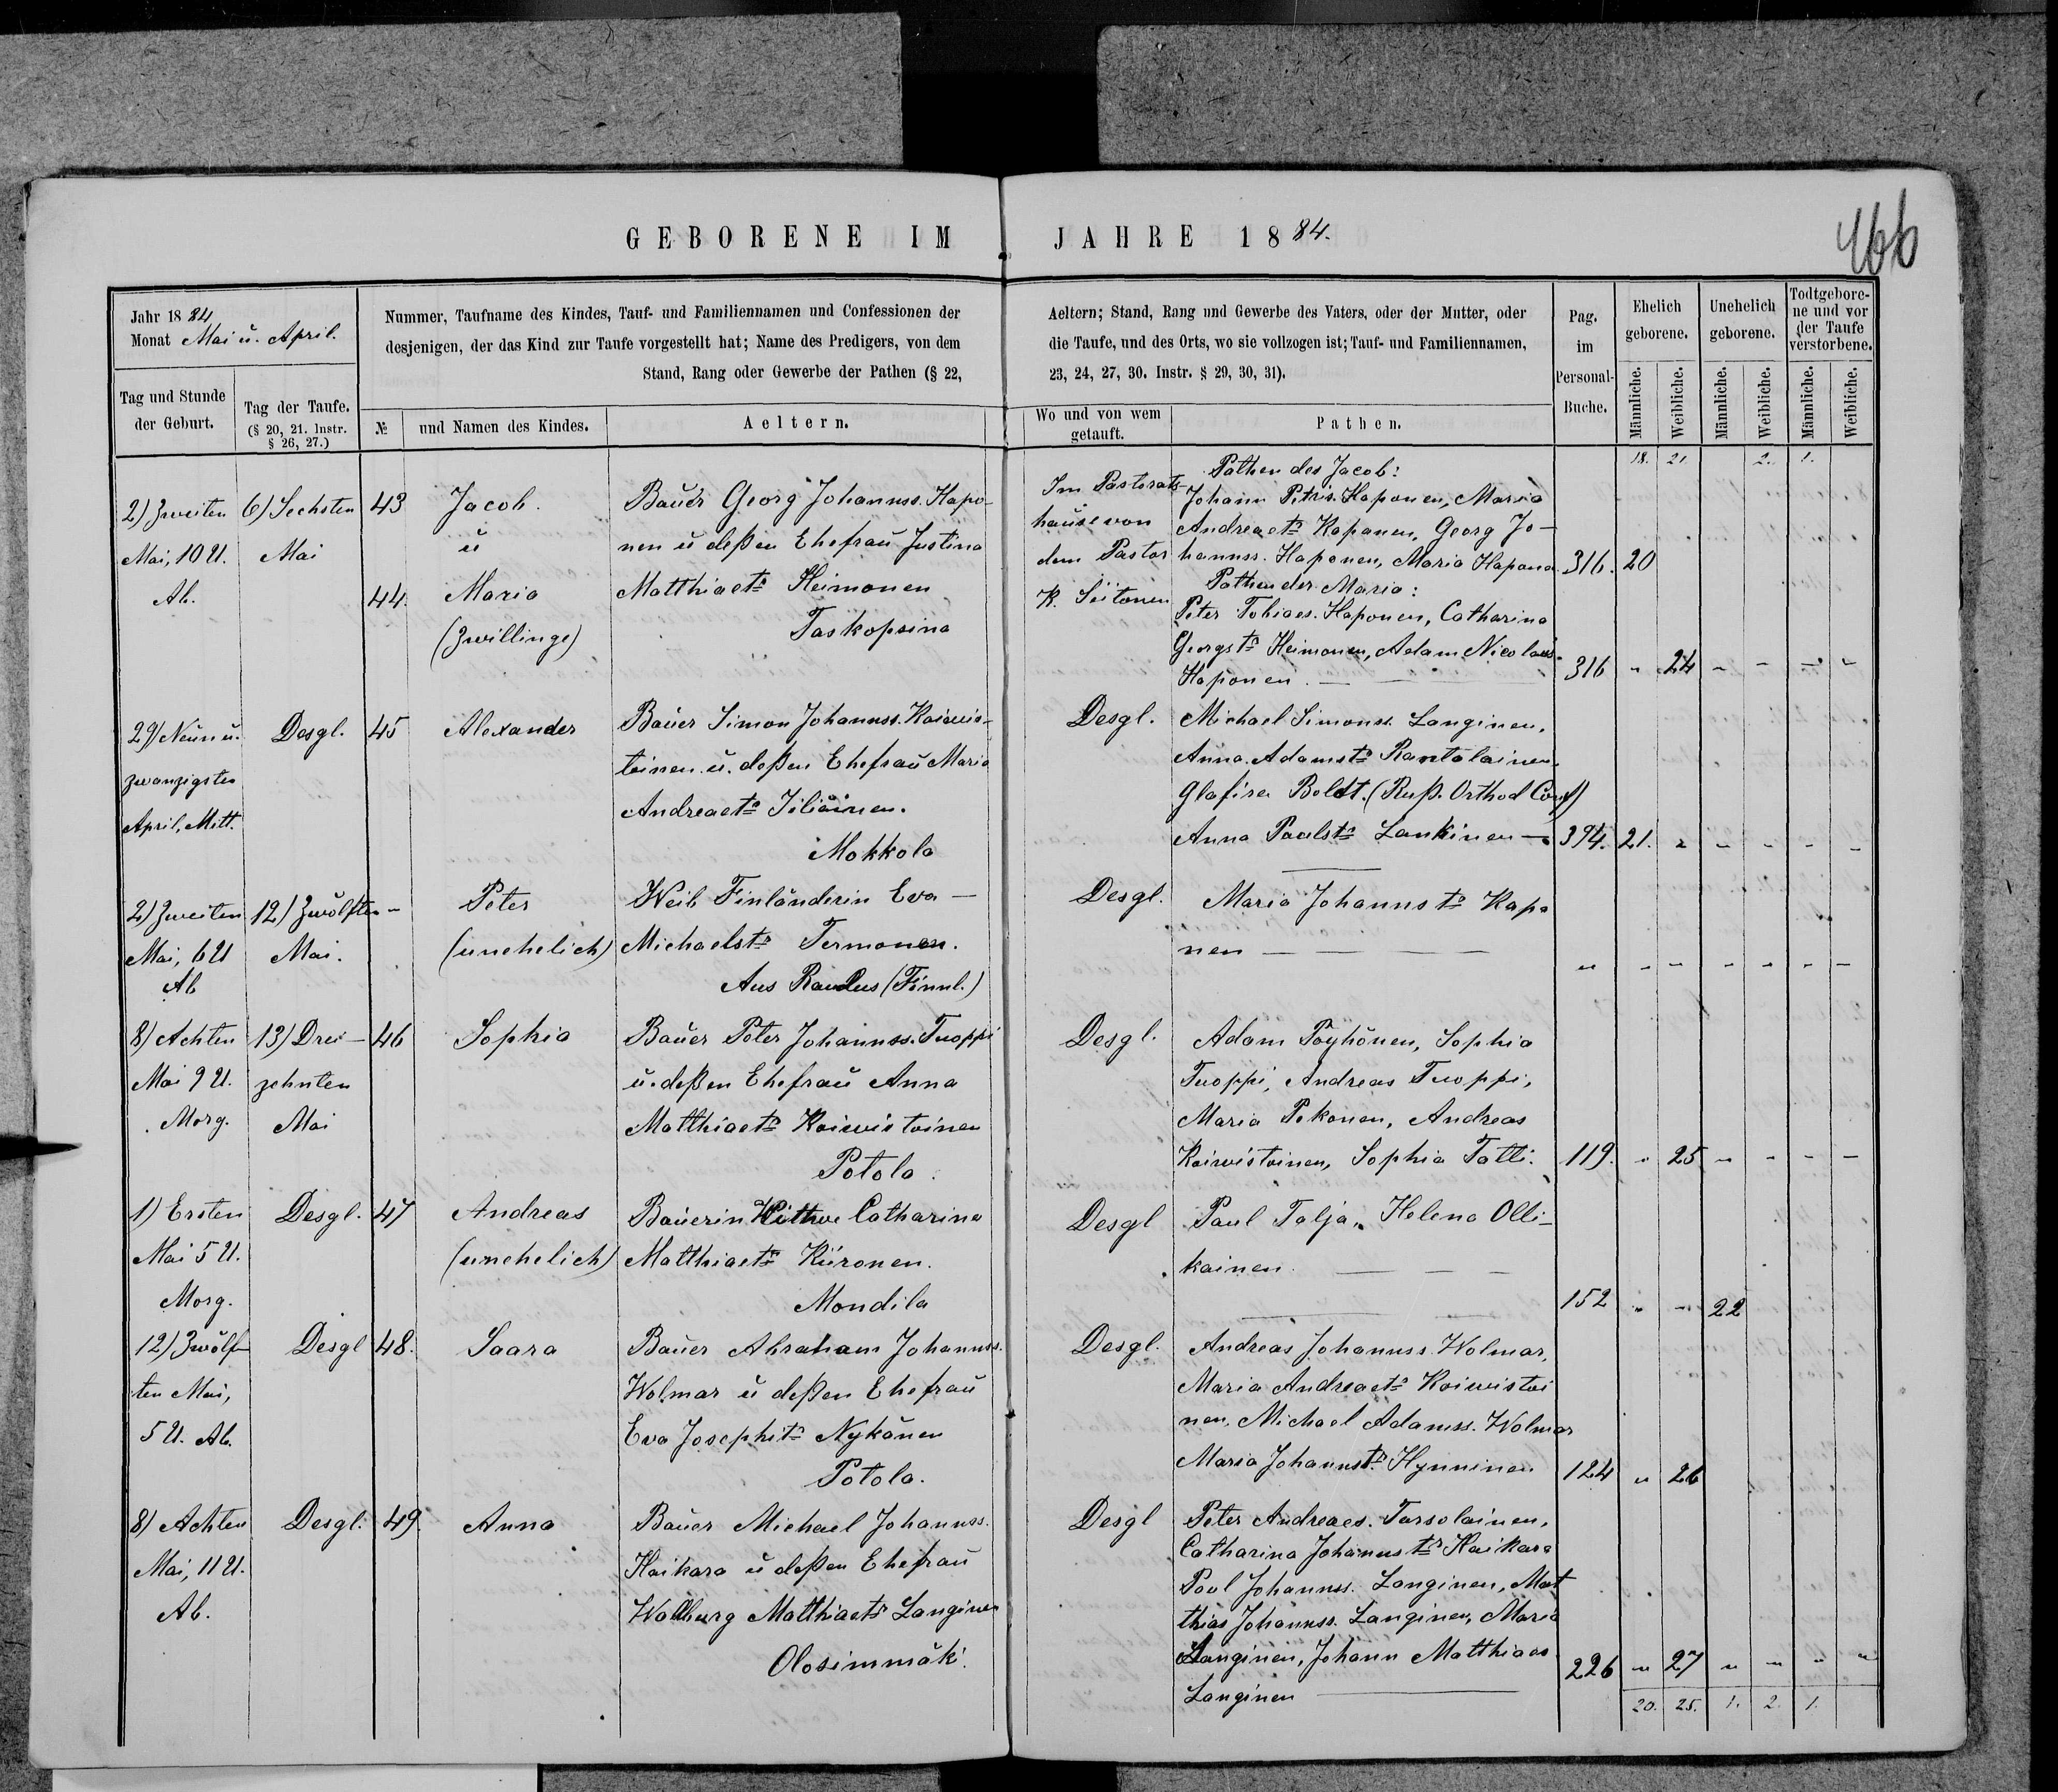 GEBORENE IM JAHRE 1884.
466
Jahr 1884
Monat Mai u. April.
Nummer, Taufname des Kindes, Tauf- und Familiennamen und Confessionen der
desjenigen, der das Kind zur Taufe vorgestellt hat; Name des Predigers, von dem
Stand, Rang oder Gewerbe der Pathen (§ 22,
Aeltern; Stand, Rang und Gewerbe des Vaters, oder der Mutter, oder
die Taufe, und des Orts, wo sie vollzogen ist; Tauf- und Familiennamen,
23, 24, 27, 30. Instr. § 29, 30, 31).
Pag.
im
Personal-
Buche.
Ehelich
geborene.
Unehelich
geborene.
Todtgebore-
ne und vor
der Taufe
verstorbene.
Tag und Stunde
der Geburt.
Tag der Taufe.
(§ 20, 21. Instr.
§ 26, 27.)
№
und Namen des Kindes.
Aeltern.
Wo und von wem
getauft.
Pathen.
Männliche.
Weibliche.
Männliche.
Weibliche.
Männliche.
Weibliche.
18. 21. 2. 1.
2) Zweiten
Mai, 10 U.
Ab.
6) Sechsten
Mai
43
44.
Jacob.
u
Maria
(Zwillinge)
Bauer Georg Johannss. Hapo-
nen u deßen Ehefrau Justina
Matthiaetr Heimonen
Taskopsina
Im Pastorats-
hause von
dem Pastor
K. Siitonen
Pathen des Jacob:
Johann Petris. Haponen, Maria
Andreaetr Kapanen, Georg Jo-
hannss. Haponen, Maria Hapona
316. 20
Pathen der Maria:
Peter Tobiaes. Haponen, Catharina
Georgstr Heimonen, Adam Nicolaus
Haponen. —
316 " 24 - - - -
29) Neun u.
zwanzigsten
April, Mitt.
Desgl.
45
Alexander
Bauer Simon Johannss. Koiwis-
toinen u. deßen Ehefrau Maria
Andreaetr Iiliäinen.
Mokkola
Desgl.
Michael Simonss. Langinen,
Anna Adamstr Rantalainen,
Glafira Boldt. (Ruß. Orthod Conf)
Anna Paulstr Lankinen —
394. 21. - - - - -
2) Zweiten
Mai, 6 U
Ab
12) Zwölften
Mai.
-
Peter
(unehelich)
Weib Finländerin Eva —
Michaelstr Termonen.
Aus Raudus (Finnl.)
Desgl.
Maria Johannstr Kapa
nen — — —
" - - - - - -
8) Achten
Mai 9 U.
Morg.
13) Drei-
zehnten
Mai
46
Sophia
Bauer Peter Johannss. Tuoppi
u. deßen Ehefrau Anna
Matthiaetr Koiwistoinen
Potola.
Desgl.
Adam Pöyhönen, Sophia
Tuoppi, Andreas Tuoppi,
Maria Pekonen, Andreas
Koiwistoinen, Sophia Tatti.
119. " 25 - - - -
1) Ersten
Mai 5 U.
Morg.
Desgl.
47
Andreas
(unehelich)
Bauerin Wittwe Catharina
Matthiaetr Kiironen.
Mondila
Desgl
Paul Talja, Helena Olli-
kainen. — — —
152 " - 22
12) Zwölf-
ten Mai,
5 U. Ab.
Desgl
48.
Saara
Bauer Abraham Johannss.
Wolmar u deßen Ehefrau
Eva Josephstr Nykänen
Potola.
Desgl.
Andreas Johannss. Wolmar,
Maria Andreaetr Koiwistoi
nen, Michael Adamss. Wolmar
Maria Johannstr Hynninen
124 " 26
8) Achten
Mai, 11 U.
Ab.
Desgl.
49.
Anna
Bauer Michael Johannss.
Haikara u deßen Ehefrau
Wallburg Matthiaetr Langinen
Olosimmäki.
Desgl
Peter Andreaes. Tarsolainen,
Catharina Johannstr Haikara
Paul Johannss. Langinen, Mat
thias Johannss. Langinen, Maria
Langinen, Johann Matthiaes
Langinen —
226 " 27 " " " "
20. 25. 1. 2. 1.